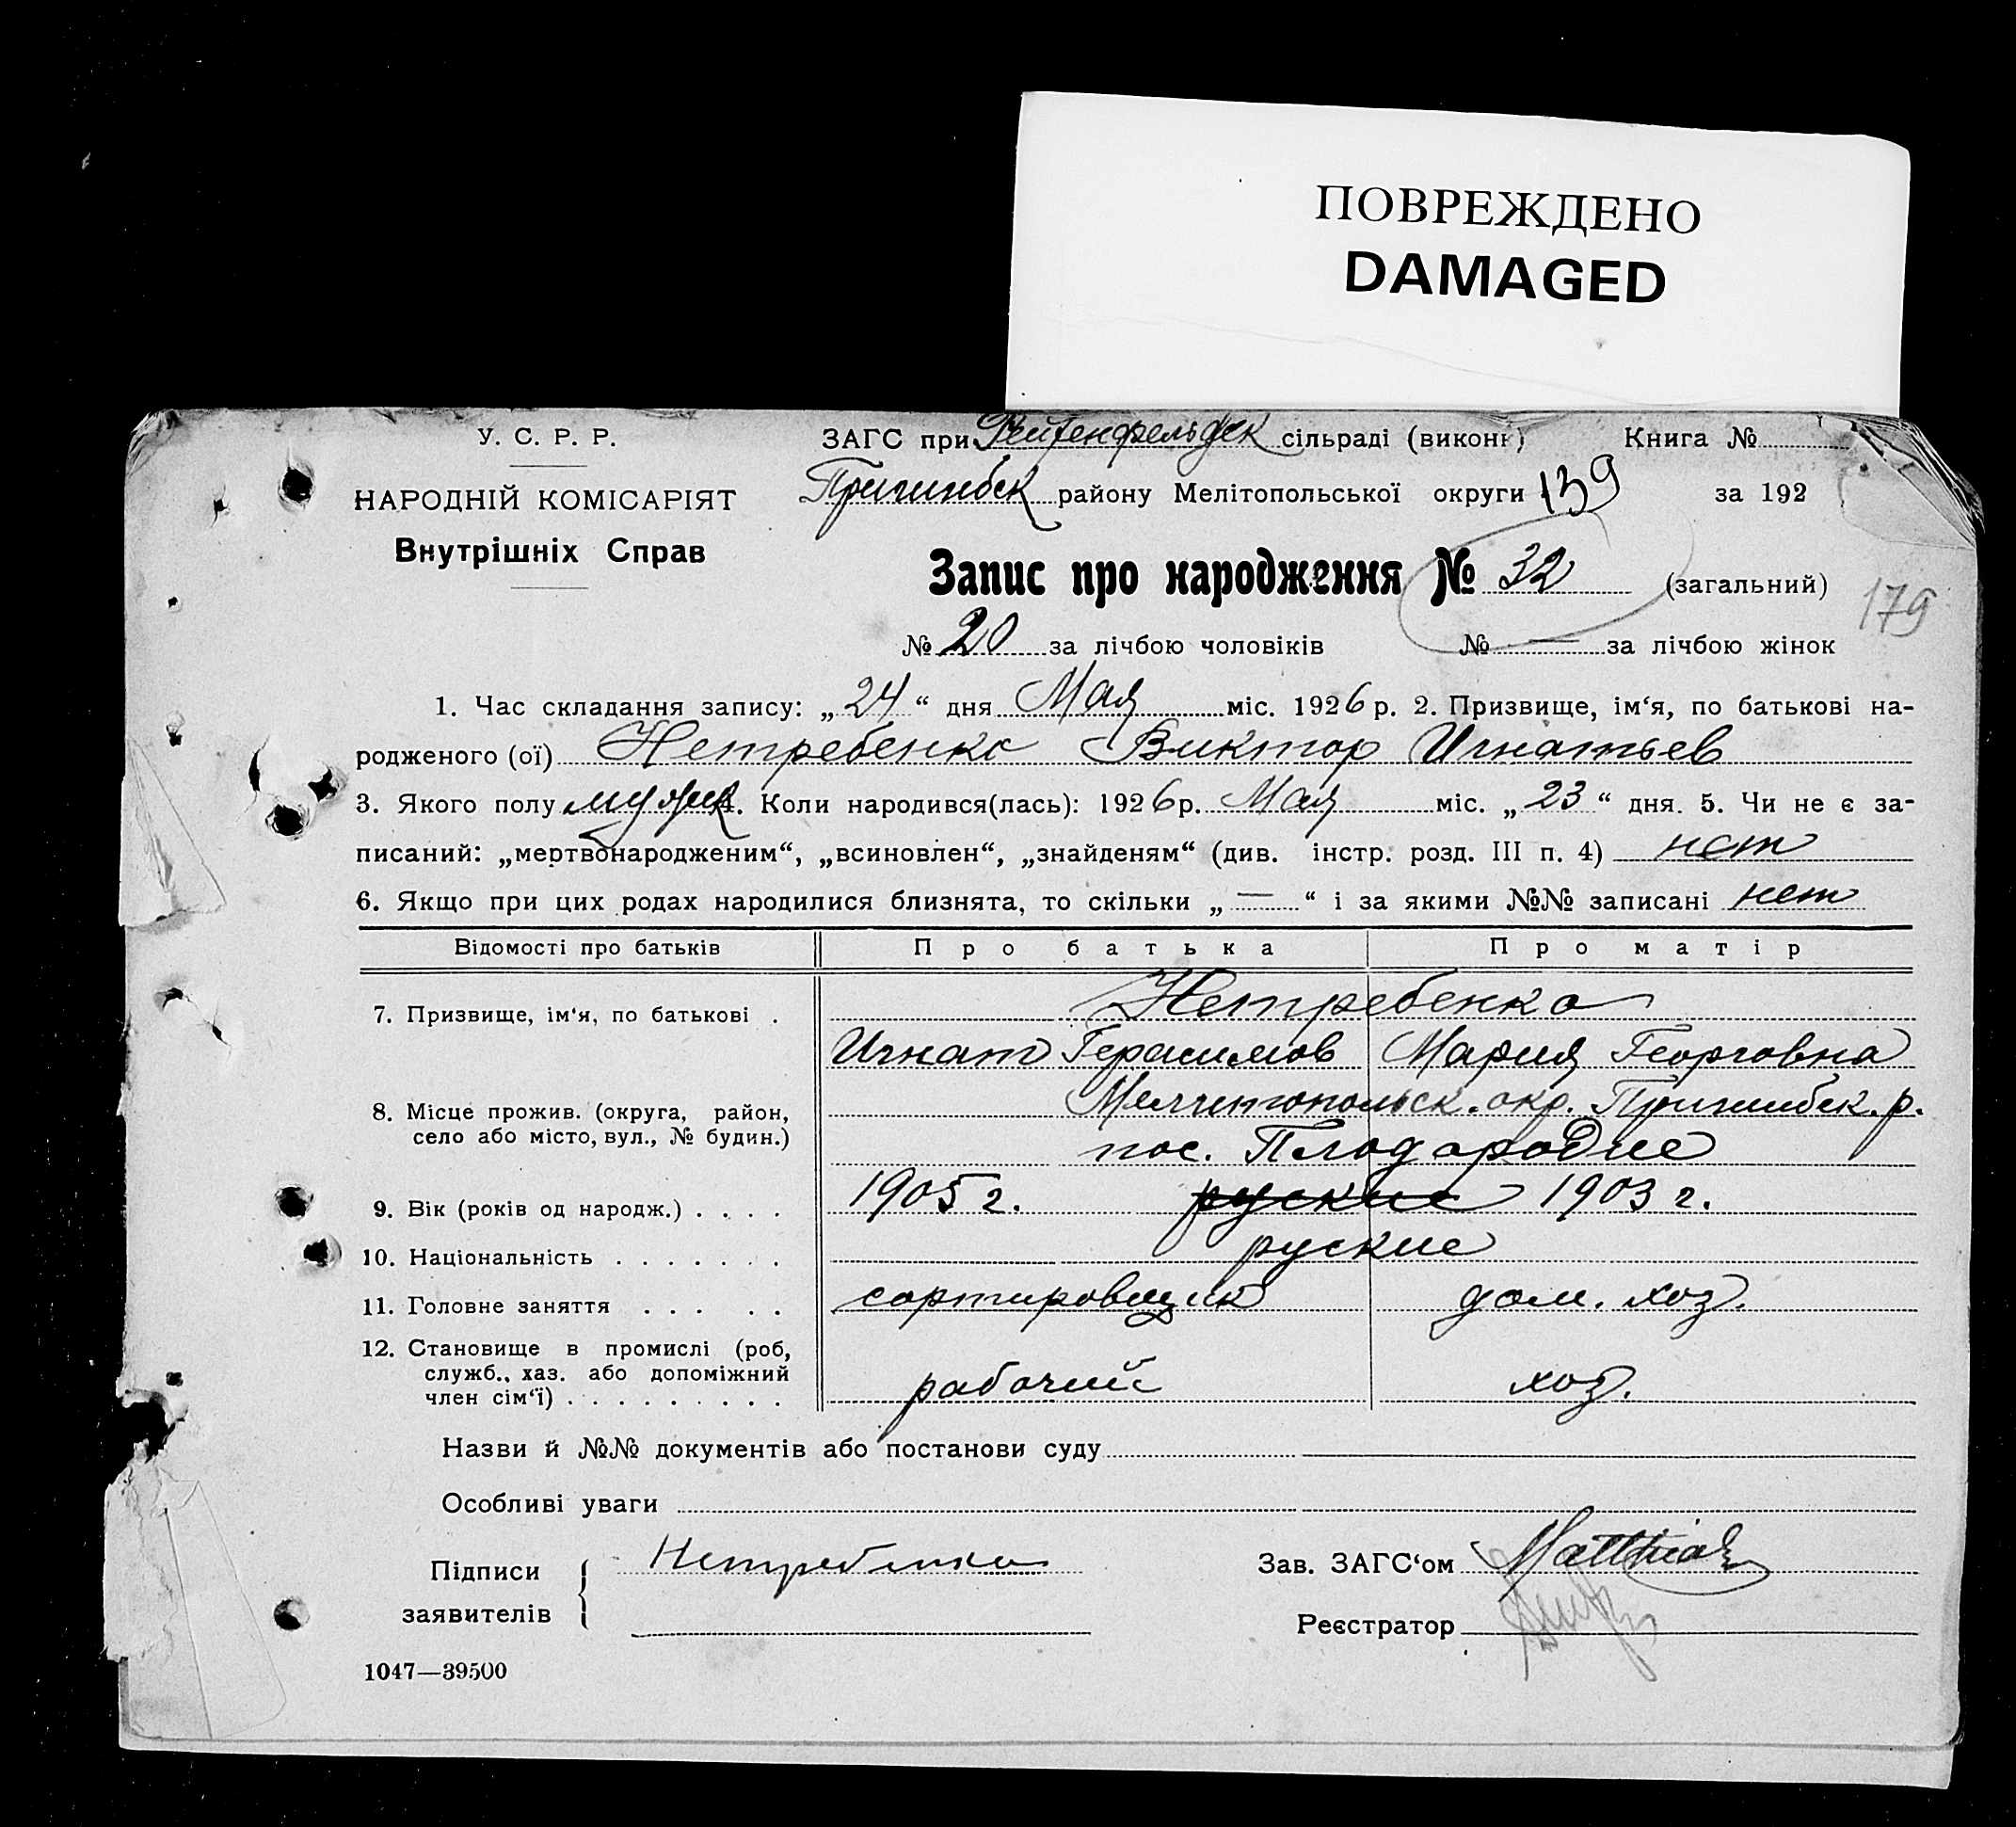 ПОВРЕЖДЕНО
DAMAGED
У. С. Р. Р.
НАРОДНІЙ КОМІСАРІЯТ
Внутрішніх Справ
ЗАГС при Рейхенфельдск сільраді (викон) Книга №
Пришибск району Мелітопольської округи 139 за 192
Запис про народження № 32 (загальний)
179
№ 20 за лічбою чоловіків № — за лічбою жінок
1. Час складання запису: „24“ дня Мая міс. 1926 р. 2. Призвище, ім‘я, по батькові на-
родженого (ої) Нетребенко Виктор Игнатьев
3. Якого полу мужск. Коли народився(лась): 1926 р. Мая міс. „23“ дня. 5. Чи не є за-
писаний: „мертвонародженим“, „всиновлен“, „знайденям“ (див. інстр. розд. III п. 4) нет
6. Якщо при цих родах народилися близнята, то скільки „—“ і за якими №№ записані нет
Відомості про батьків Про батька Про матір
7. Призвище, ім‘я, по батькові . Нетребенко
Игнат Герасимов Мария Георговна
8. Місце прожив. (округа, район, село або місто, вул., № будин.) Мелитопольск. окр. Пришибск. р.
пос. Плодородие
9. Вік (років од народж.) . . . . 1905 г. руские 1903 г.
10. Національність . . . . . . . руские
11. Головне заняття . . . . . сортировщик дом. хоз.
12. Становище в промислі (роб,
служб., хаз. або допоміжний
член сім‘ї) . . . . . . . . . рабочий хоз.
Назви й №№ документів або постанови суду
Особливі уваги
Підписи заявителів Нетребенко
Зав. ЗАГС‘ом
Реєстратор
1047—39500